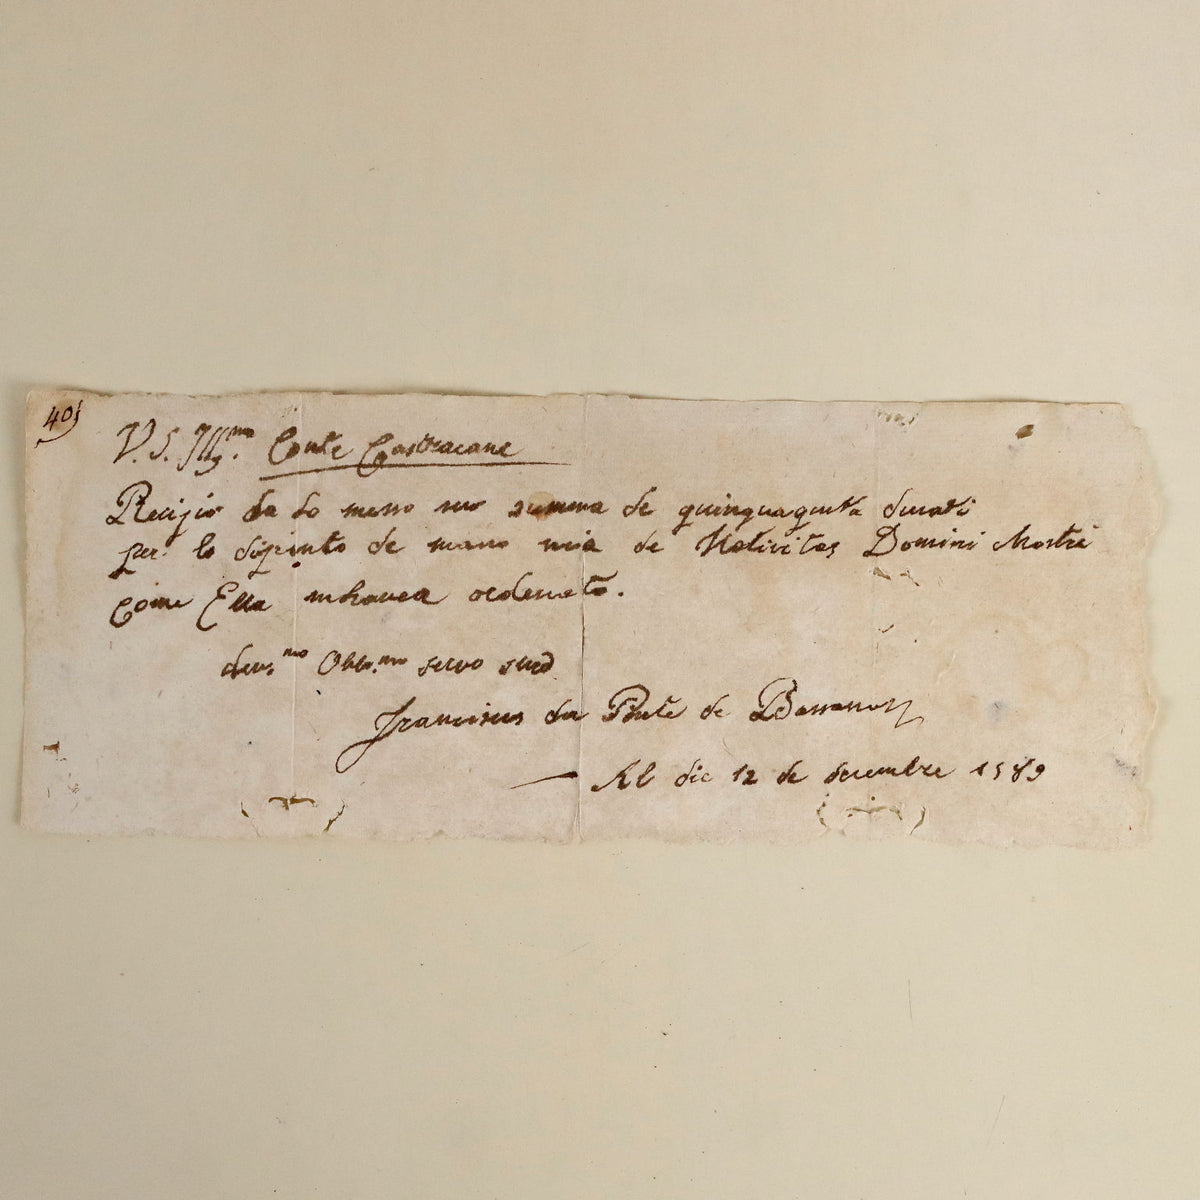 40)
V. S. Ill.mo Conte Castracane
Recijio da lo messo suo summa de quinquaginta ducati
per lo dipinto de mano mia de Nativitas Domini Nostri
come Ella mhavea ordenato.
dev.mo Obb.mo servo suo
Franciscus da Ponte de Bassano
Al die 12 de decembre 1589